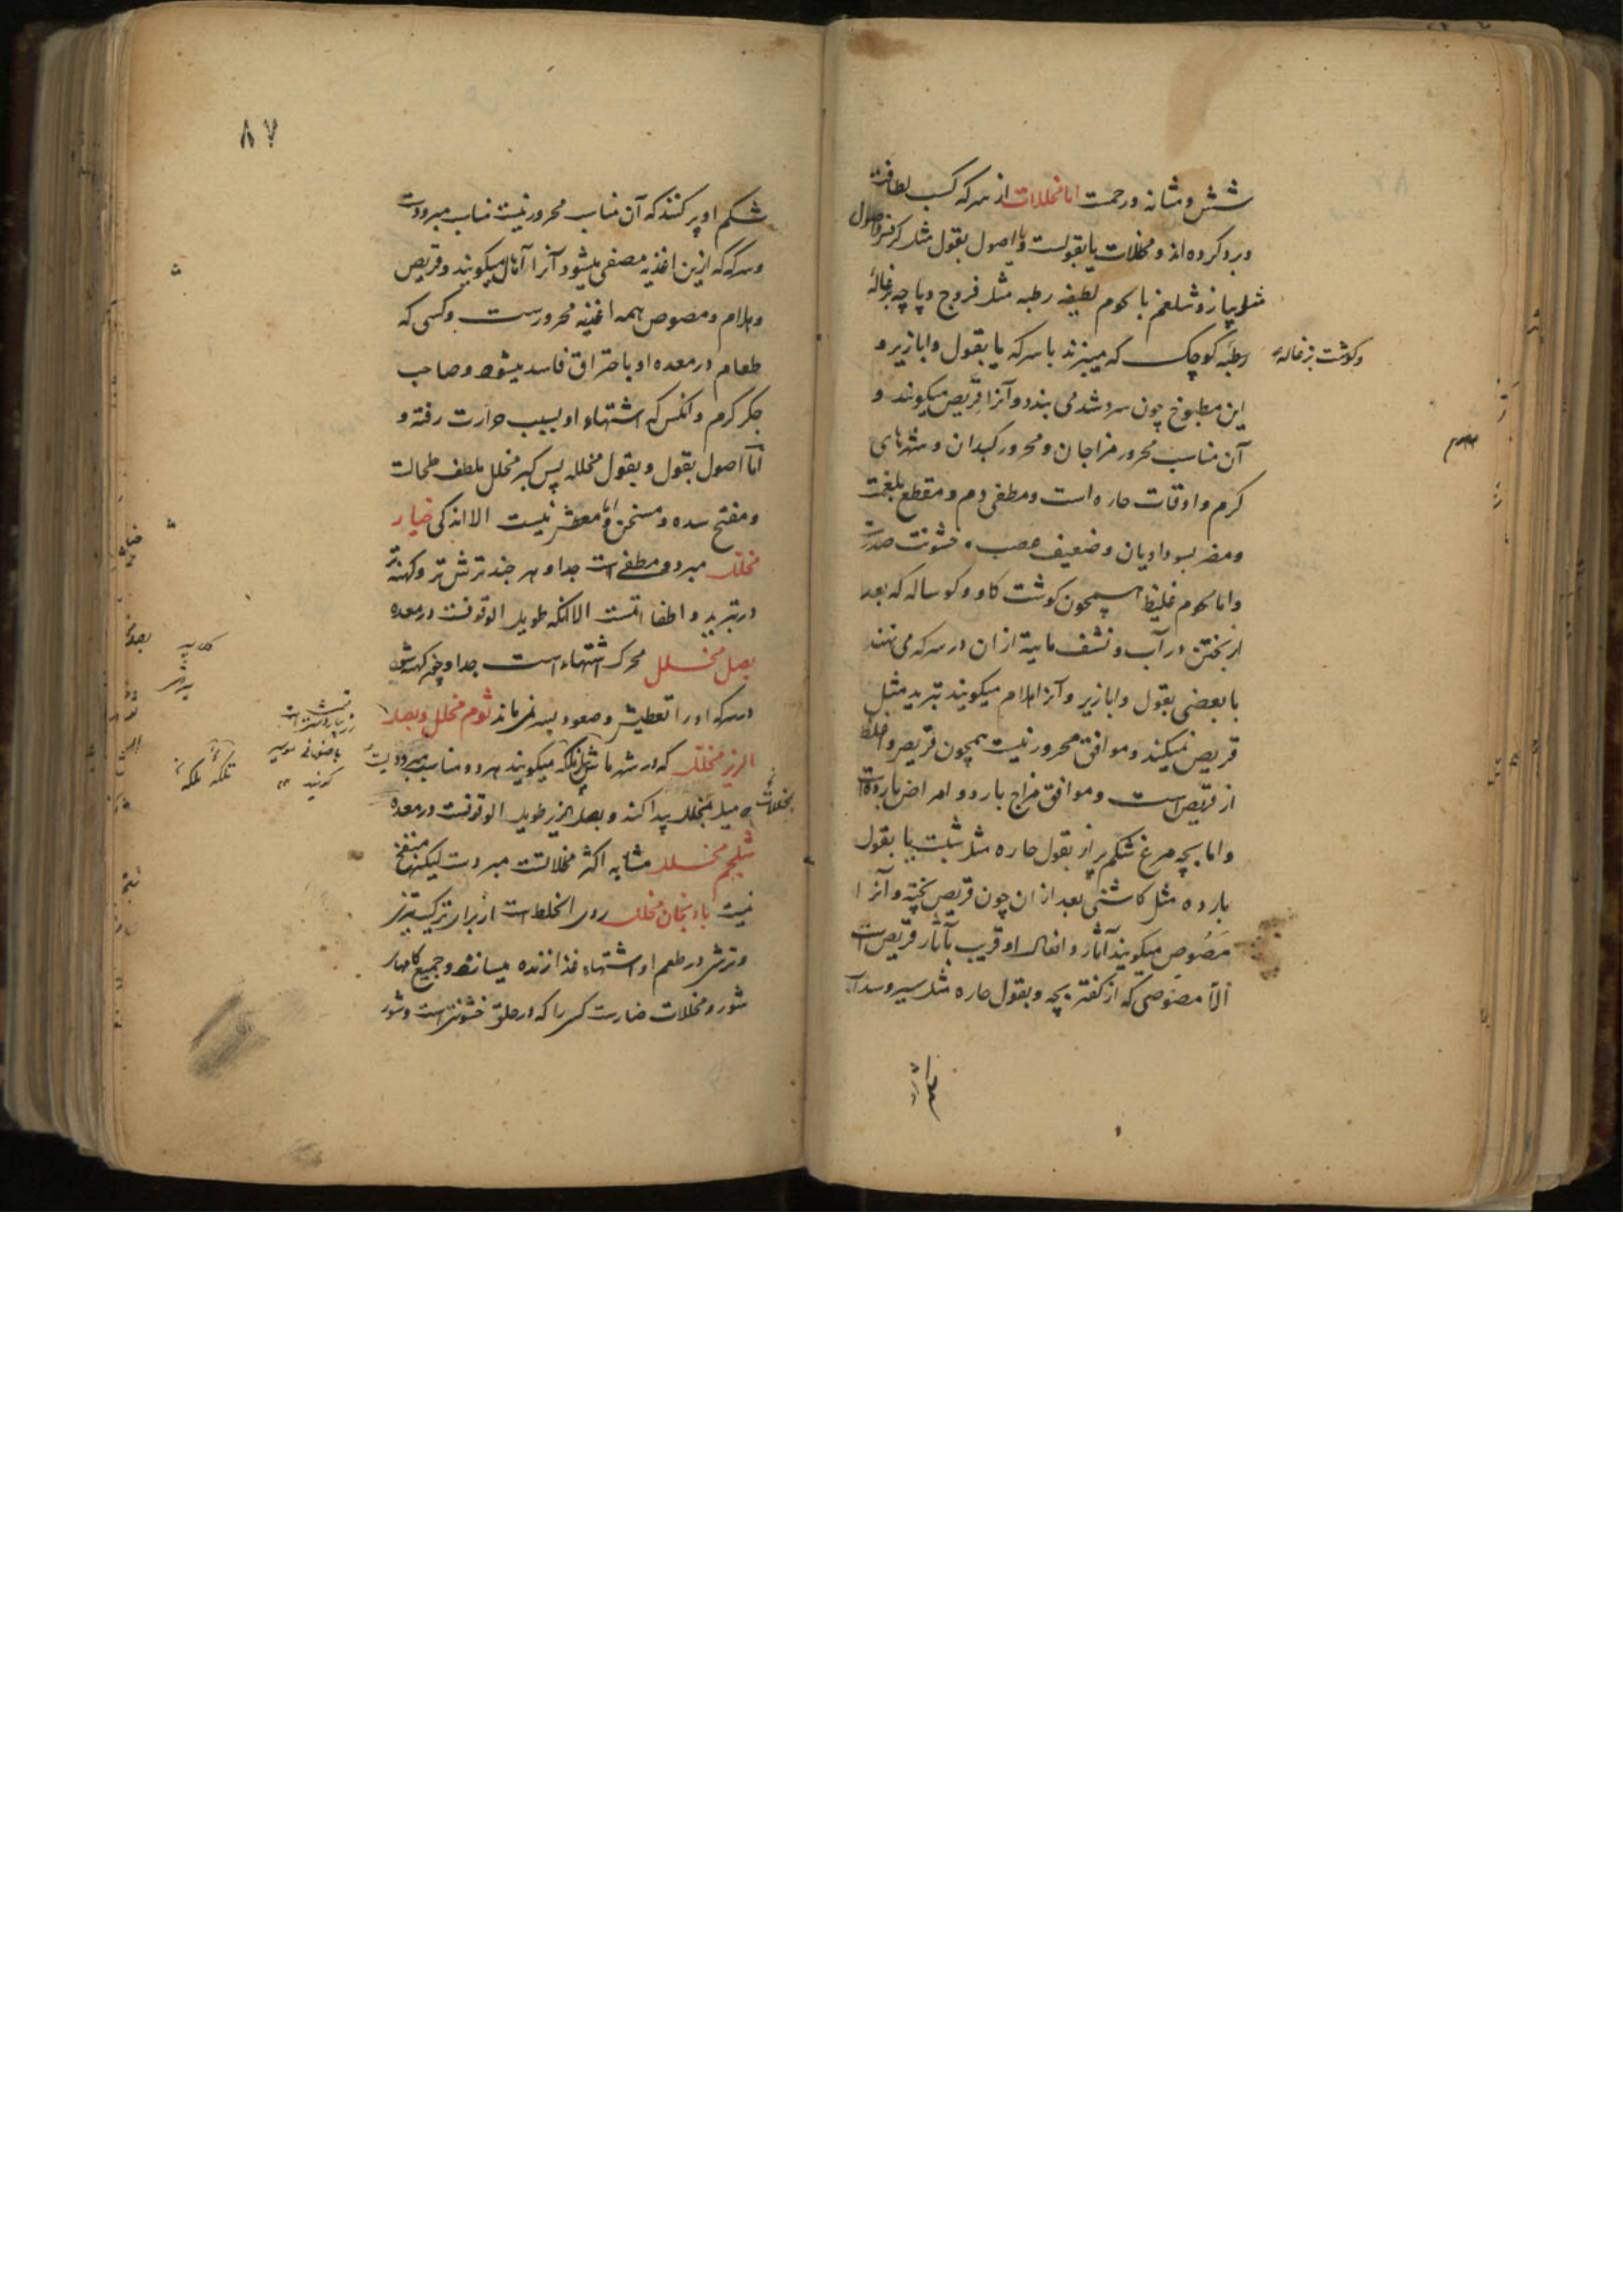 شش و مثانه و رحمست اما مخللات از سرکه کسب لطافت
و برد کرده اند و مخللات یا بقولست و یا اصول بقول مثل کرفس و اصول
مثل پیاز و شلغم یا لحوم لطیفه رطبه مثل فروج و پاچه بزغاله
وکوشت بزغاله
رطبه کوچک که میپزند با سرکه یا بقول و ابازیر و
این مطبوخ چون سرد شد می بندد و آنرا قریص میکویند و
آن مناسب محرور مزاجان و محرور کبدان و شهرهای
کرم و اوقات حاره است و مطفی دم و مقطع بلغمت
و مضر بسوداویان و ضعیف عصب و خشونت صدرست
و اما لحوم غلیظ همچون کوشت کاو و کوساله که بعد
از پختن در آب و نشف مایته از ان در سرکه می نهند
با بعضی بقول و ابازیر و آنرا هلام میکویند تبرید مثل
قریص نمیکند و موافق محرور نیست همچون قریص و اغلظ
از قریص است و موافق مزاج بارد و امراض بارده است
و اما بچه مرغ شکم پر از بقول حاره مثل شبت یا بقول
بارده مثل کاشنی بعد از ان چون قریص پخته و آنرا
مَصُوص میکویند آثار و افعال او قریب بآثار قریص است
الا مصوصی که از کفتر بچه و بقول حاره مثل سیر و سداب
۸۷
شکم او پر کنند که آن مناسب محرور نیست مناسب مبرودست
و سرکه که ازین اغذیه مصفی میشود آنرا آمال میکویند و قریص
و هلام و مصوص همه اغذیه محرورست و کسی که
طعام در معده او باحتراق فاسد میشود و صاحب
جکر کرم و انکس که اشتهاء او بسبب حرارت رفته و
اما اصول بقول و بقول مخلله پس کبر مخلل ملطف طحالست
و مفتح سده و مسخن و اما معطش نیست الا اندکی خیار
مخلل مبرد و مطفی است جدا و هر چند ترش تر و کهنه تر
در تبرید و اطفا اتمست الا انکه طویل الوقوفست در معده
بصل مخلل محرک اشتهاء است جدا و چون کهنه شود
در سرکه او را تعطیش و صعود بسر نمی ماند ثوم مخلل و بصل
الزیز مخلل که در شهر ما تلکه میکویند هر دو مناسب مبرودیست
که میل بمخلل پیدا کند و بصل الزیز طویل الوقوفست در معده
بمخللات
شلجم مخلل مشابه اکثر مخللاتست مبردست لیکن منفخ
نیست بادنجان مخلل ردی الخلط است از برای ترکیب تیزی
و ترشی در طعم او اشتهاء غذا زنده میسازد و جمیع کامهاء
شور و مخللات ضارست کسی را که در حلق خشونتست و شور
تلکه تلکه
کویند